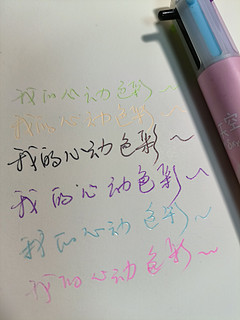 我的心动色彩~
我的心动色彩~
我的心动色彩~
我的心动色彩~
我的心动色彩~
我的心动色彩~